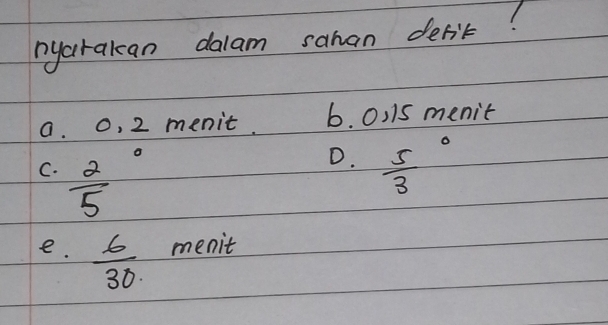 nyatakan dalam sahan detik !
a. 0,2 menit. b. 0,15 menit
c. 2/5 ° D. 5/3 °
e. 6/30. menit